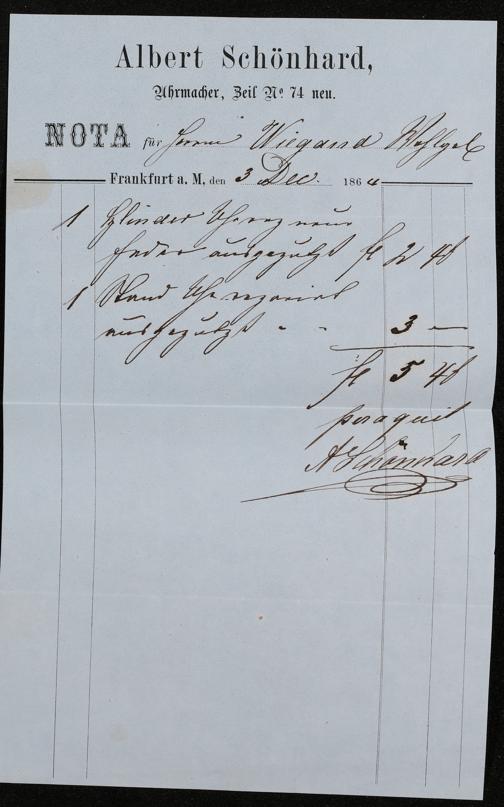 Albert Schönhard,
Uhrmacher, Zeil No 74 neu.
NOTA für Herrn Wiegand Wohlgeb
Frankfurt a. M, den 3 Dec. 1864
1 Zilinder Uhr rep neue
Feder ausgeputzt fl 2 48
1 Stand Uhr repariert
ausgeputzt " " 3 —
fl 5 48
per aquit
A Schönhard